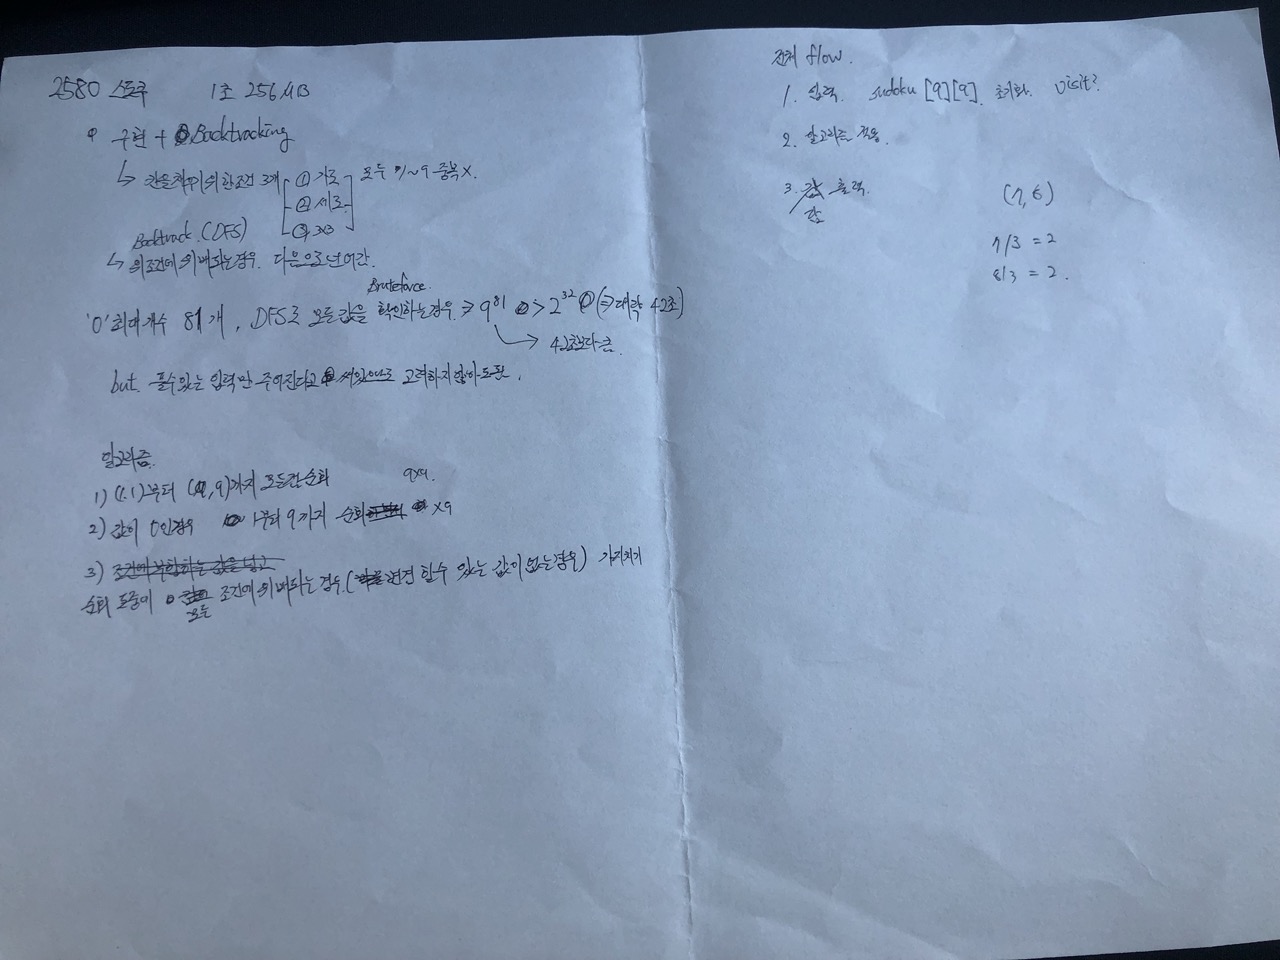 2580 스도쿠 1초 256MB
구현 + Backtracking
↳ 칸을 채우기 위한 조건 3개 ① 가로 모두 1~9 중복 X.
② 세로
③ 3x3
Backtrack.(DFS)
↳ 위 조건에 위배되는 경우. 다음으로 넘어감.
Bruteforce.
'0' 최대개수 81개, DFS로 모든 값을 확인하는 경우 ⇒ 9^81 > 2^32 (⇒ 대략 42초)
42초보다 큼.
but. 풀 수 있는 입력만 주어진다고 써있으므로 고려하지 않아도 됨.
알고리즘.
1) (1.1)부터 (9,9)까지 모든칸 순회 9x9.
2) 값이 0인경우 1부터 9까지 순회 x9
3) 조건에 부합하는 값을 넣고
순회 도중에 모든 조건에 위배되는 경우.( 할 수 있는 값이 없는 경우) 가지치기
전체 flow.
1. 입력. sudoku [9][9]. 초기화. visit?
2. 알고리즘 적용.
3. 값 출력.
(7,6)
7/3 = 2
8/3 = 2.